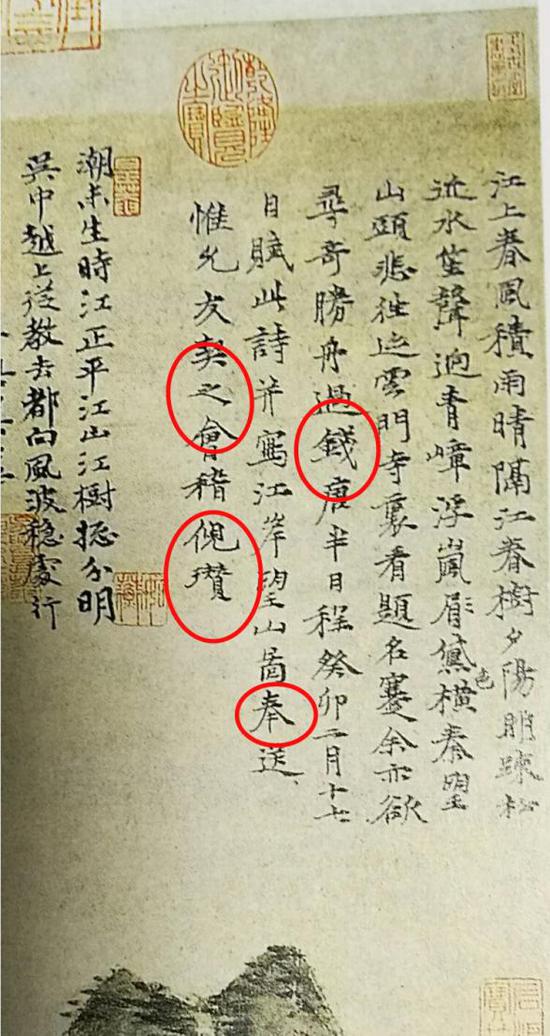 江上春風積雨晴隔江春樹夕陽明疎松
近水笙聲迥青嶂浮嵐眉黛色橫秦望
山頭悲往迹雲門寺裏看題名蹇余亦欲
尋奇勝舟過錢唐半日程癸卯二月十七
日賦此詩并寫江岸望山啚奉送
惟允友契之會稽倪瓚
乾隆御覽之寶
潮未生時江正平江山江樹揔分明
吳中越上從教去都向風波穩處行